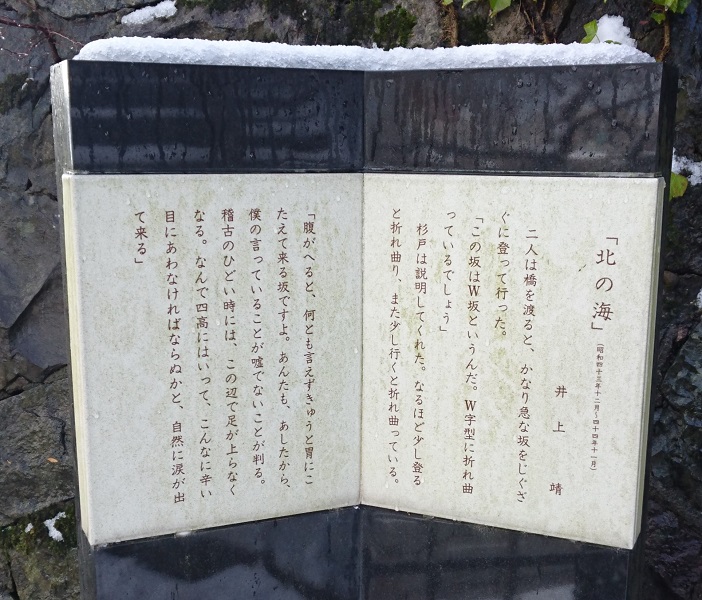 「北の海」(昭和四十三年十二月～四十四年十一月)
井上 靖
二人は橋を渡ると、かなり急な坂をじぐざ
ぐに登って行った。
「この坂はW坂というんだ。W字型に折れ曲
っているでしょう」
杉戸は説明してくれた。なるほど少し登る
と折れ曲り、また少し行くと折れ曲っている。
「腹がへると、何とも言えずきゅうと胃にこ
たえて来る坂ですよ。あんたも、あしたから、
僕の言っていることが嘘でないことが判る。
稽古のひどい時には、この辺で足が上らなく
なる。なんで四高にはいって、こんなに辛い
目にあわなければならぬかと、自然に涙が出
て来る」